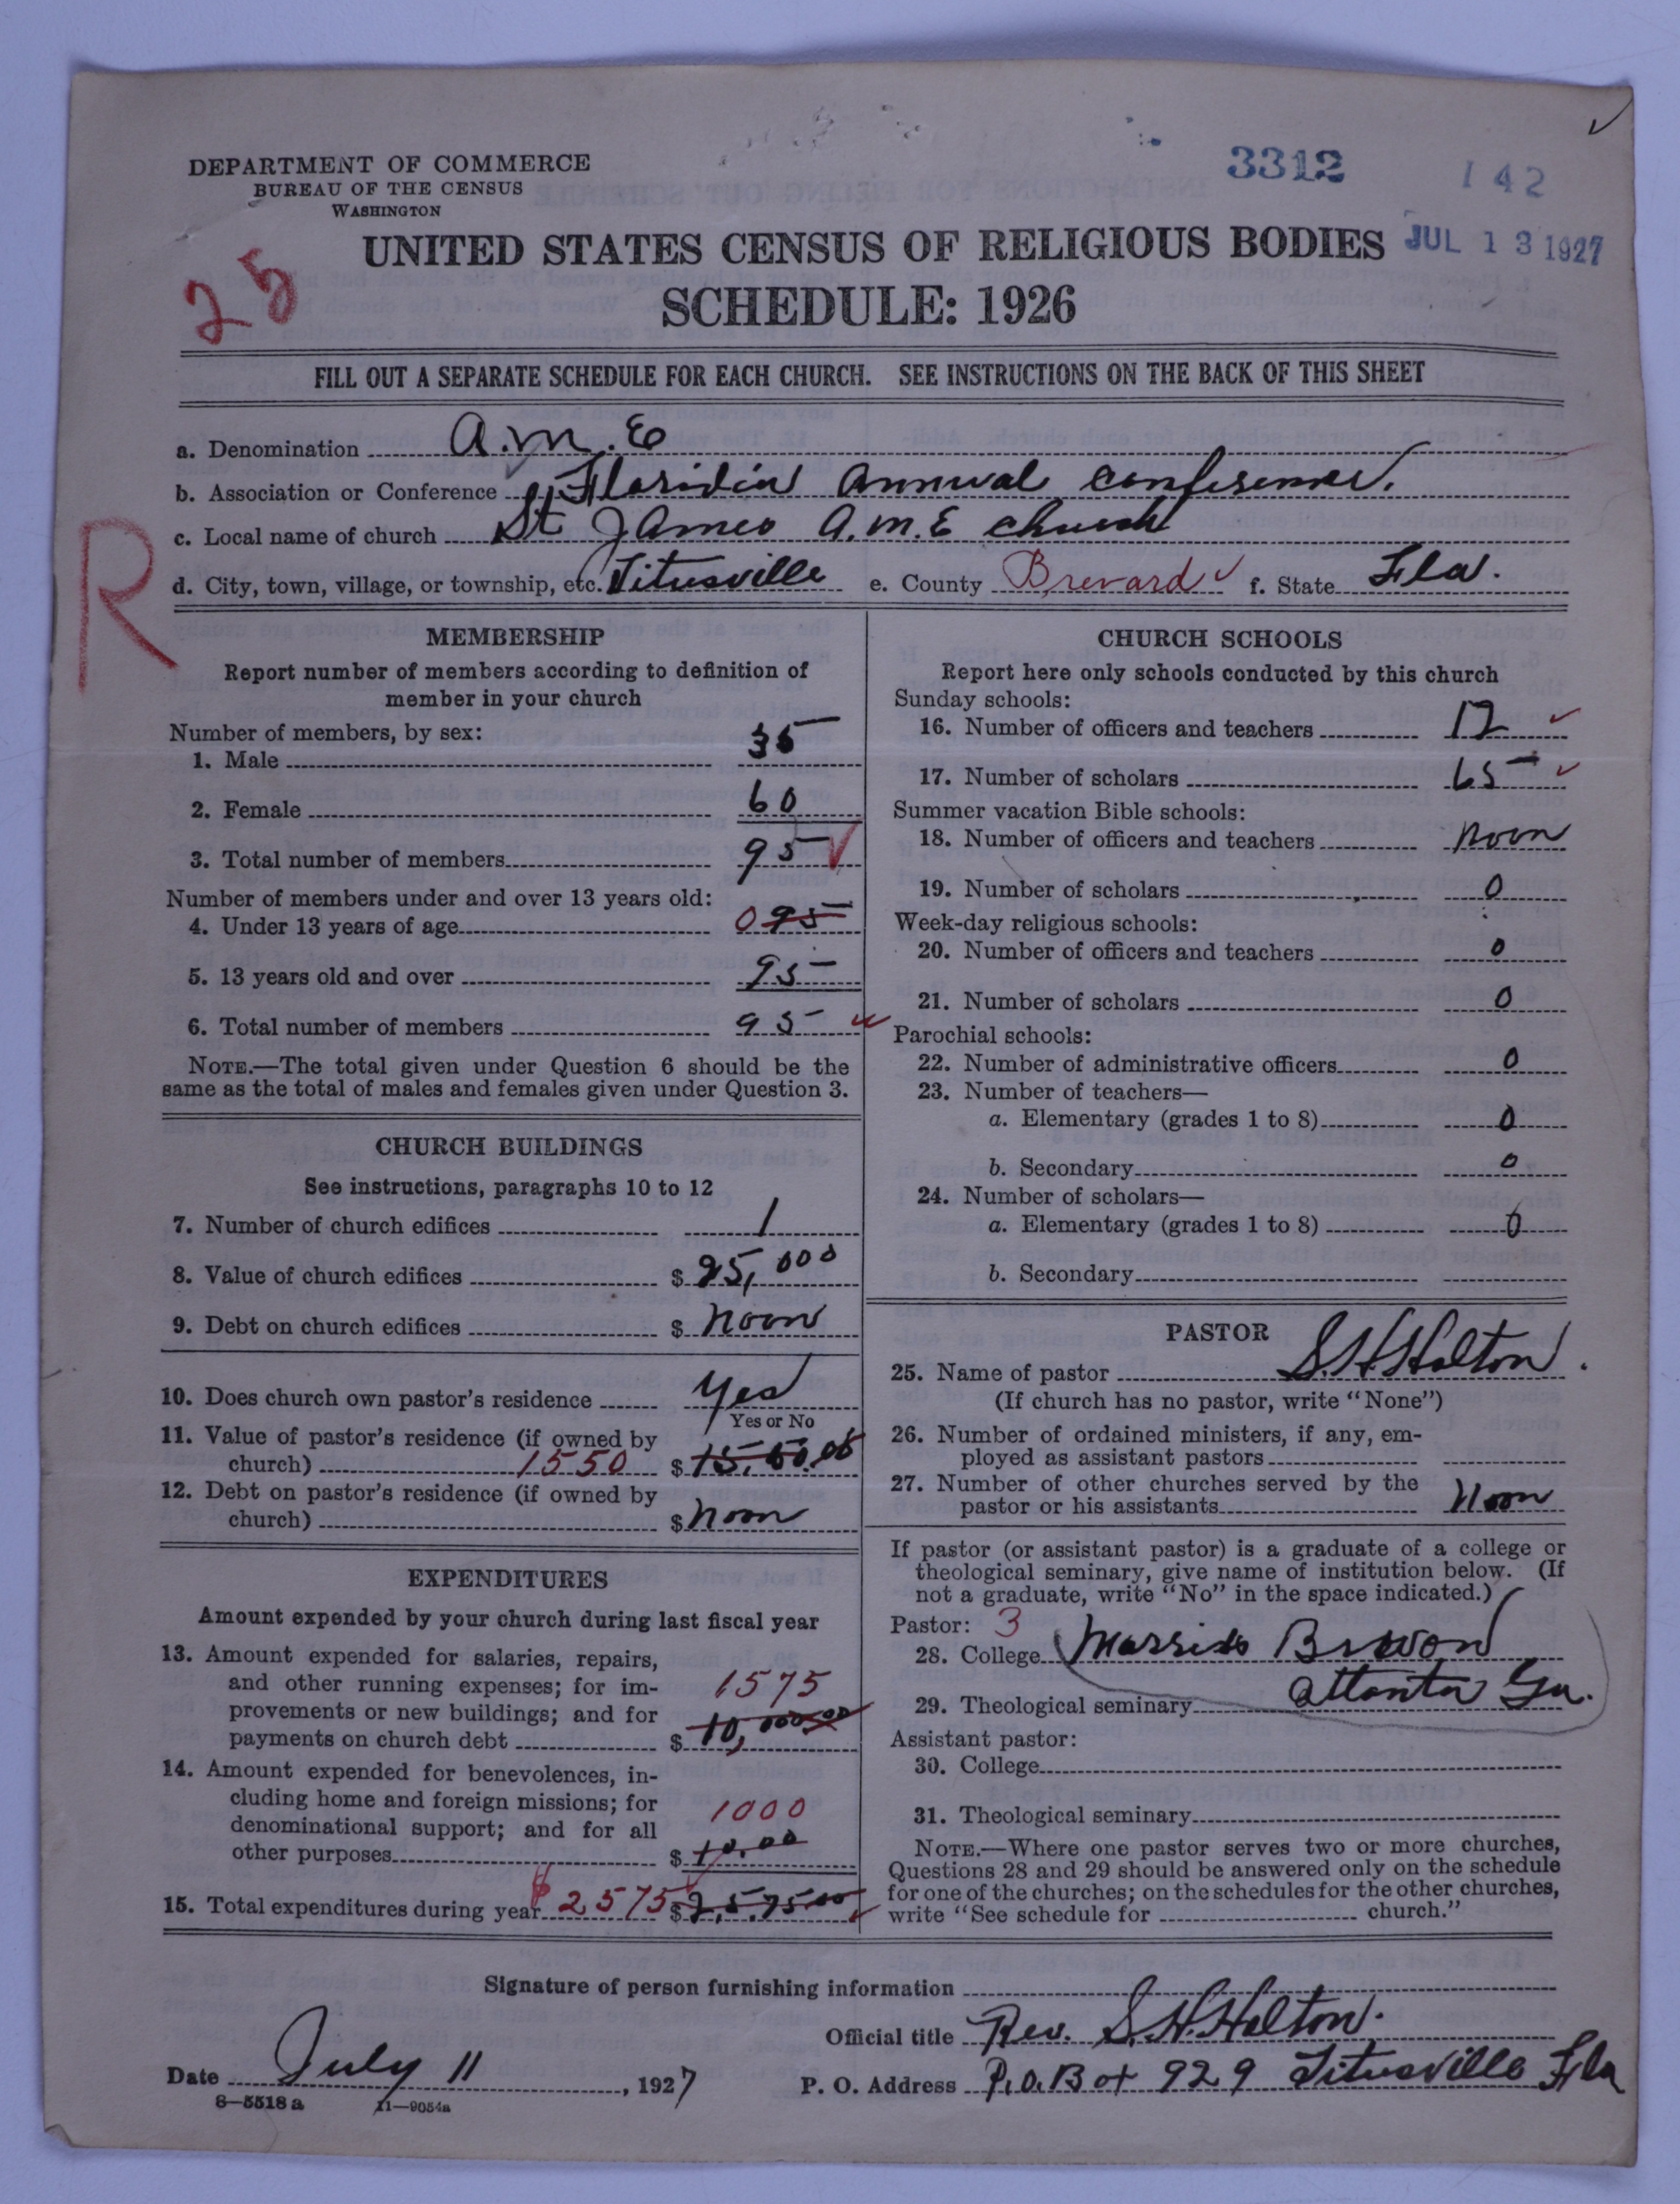 3312
142
DEPARTMENT OF COMMERCE
BUREAU OF THE CENSUS
WASHINGTON
UNITED STATES CENSUS OF RELIGIOUS BODIES
JUL 13 1927
SCHEDULE: 1926
25
FILL OUT A SEPARATE SCHEDULE FOR EACH CHURCH. SEE INSTRUCTIONS ON THE BACK OF THIS SHEET
a. Denomination A.M.E
b. Association or Conference Annual
c. Local name of church St James A.M.E church
d. City, town, village, or township, etc. Titusville e. County Brevard f. State Fla.
R
MEMBERSHIP
Report number of members according to definition of
member in your church
Number of members, by sex:
1. Male 35
2. Female 60
3. Total number of members 95
Number of members under and over 13 years old:
4. Under 13 years of age 0 95
5. 13 years old and over 95
6. Total number of members 95
NOTE.—The total given under Question 6 should be the
same as the total of males and females given under Question 3.
CHURCH BUILDINGS
See instructions, paragraphs 10 to 12
7. Number of church edifices 1
8. Value of church edifices $ 25,000
9. Debt on church edifices $ noon
10. Does church own pastor's residence yes
Yes or No
11. Value of pastor's residence (if owned by
church) 1550 $
12. Debt on pastor's residence (if owned by
church) $ noon
EXPENDITURES
Amount expended by your church during last fiscal year
13. Amount expended for salaries, repairs,
and other running expenses; for im-
provements or new buildings; and for 1575
payments on church debt $ 10,000.00
14. Amount expended for benevolences, in-
cluding home and foreign missions; for
denominational support; and for all 1000
other purposes $ 10.00
15. Total expenditures during year $ 2575 $ 2,5.75.00
CHURCH SCHOOLS
Report here only schools conducted by this church
Sunday schools:
16. Number of officers and teachers 12
17. Number of scholars 65
Summer vacation Bible schools:
18. Number of officers and teachers noon
19. Number of scholars 0
Week-day religious schools:
20. Number of officers and teachers 0
21. Number of scholars 0
Parochial schools:
22. Number of administrative officers 0
23. Number of teachers—
a. Elementary (grades 1 to 8) 0
b. Secondary 0
24. Number of scholars—
a. Elementary (grades 1 to 8) 0
b. Secondary
PASTOR
25. Name of pastor S. H. Holton.
(If church has no pastor, write "None")
26. Number of ordained ministers, if any, em-
ployed as assistant pastors
27. Number of other churches served by the
pastor or his assistants noon
If pastor (or assistant pastor) is a graduate of a college or
theological seminary, give name of institution below. (If
not a graduate, write "No" in the space indicated.)
Pastor: 3
28. College
29. Theological seminary Ga.
Assistant pastor:
30. College
31. Theological seminary
NOTE.—Where one pastor serves two or more churches,
Questions 28 and 29 should be answered only on the schedule
for one of the churches; on the schedules for the other churches,
write "See schedule for church."
Signature of person furnishing information
Official title Rev. S. H. Holton.
Date July 11, 1927 P. O. Address P.O. Box 929 Titusville Fla
8—5518 a 11—9054a